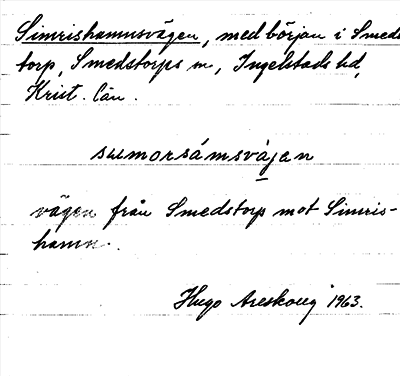 Simrishamnsvägen, med början i Smeds
torp, Smedstorps sn, Ingelstads hd,
Krist. län.
summorsámsvájan
vägen från Smedstorp mot Simris-
hamn.
Hugo Areskoug 1963.